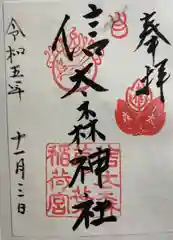 奉拝
信太森神社
稲荷宮
令和五年
十一月三日